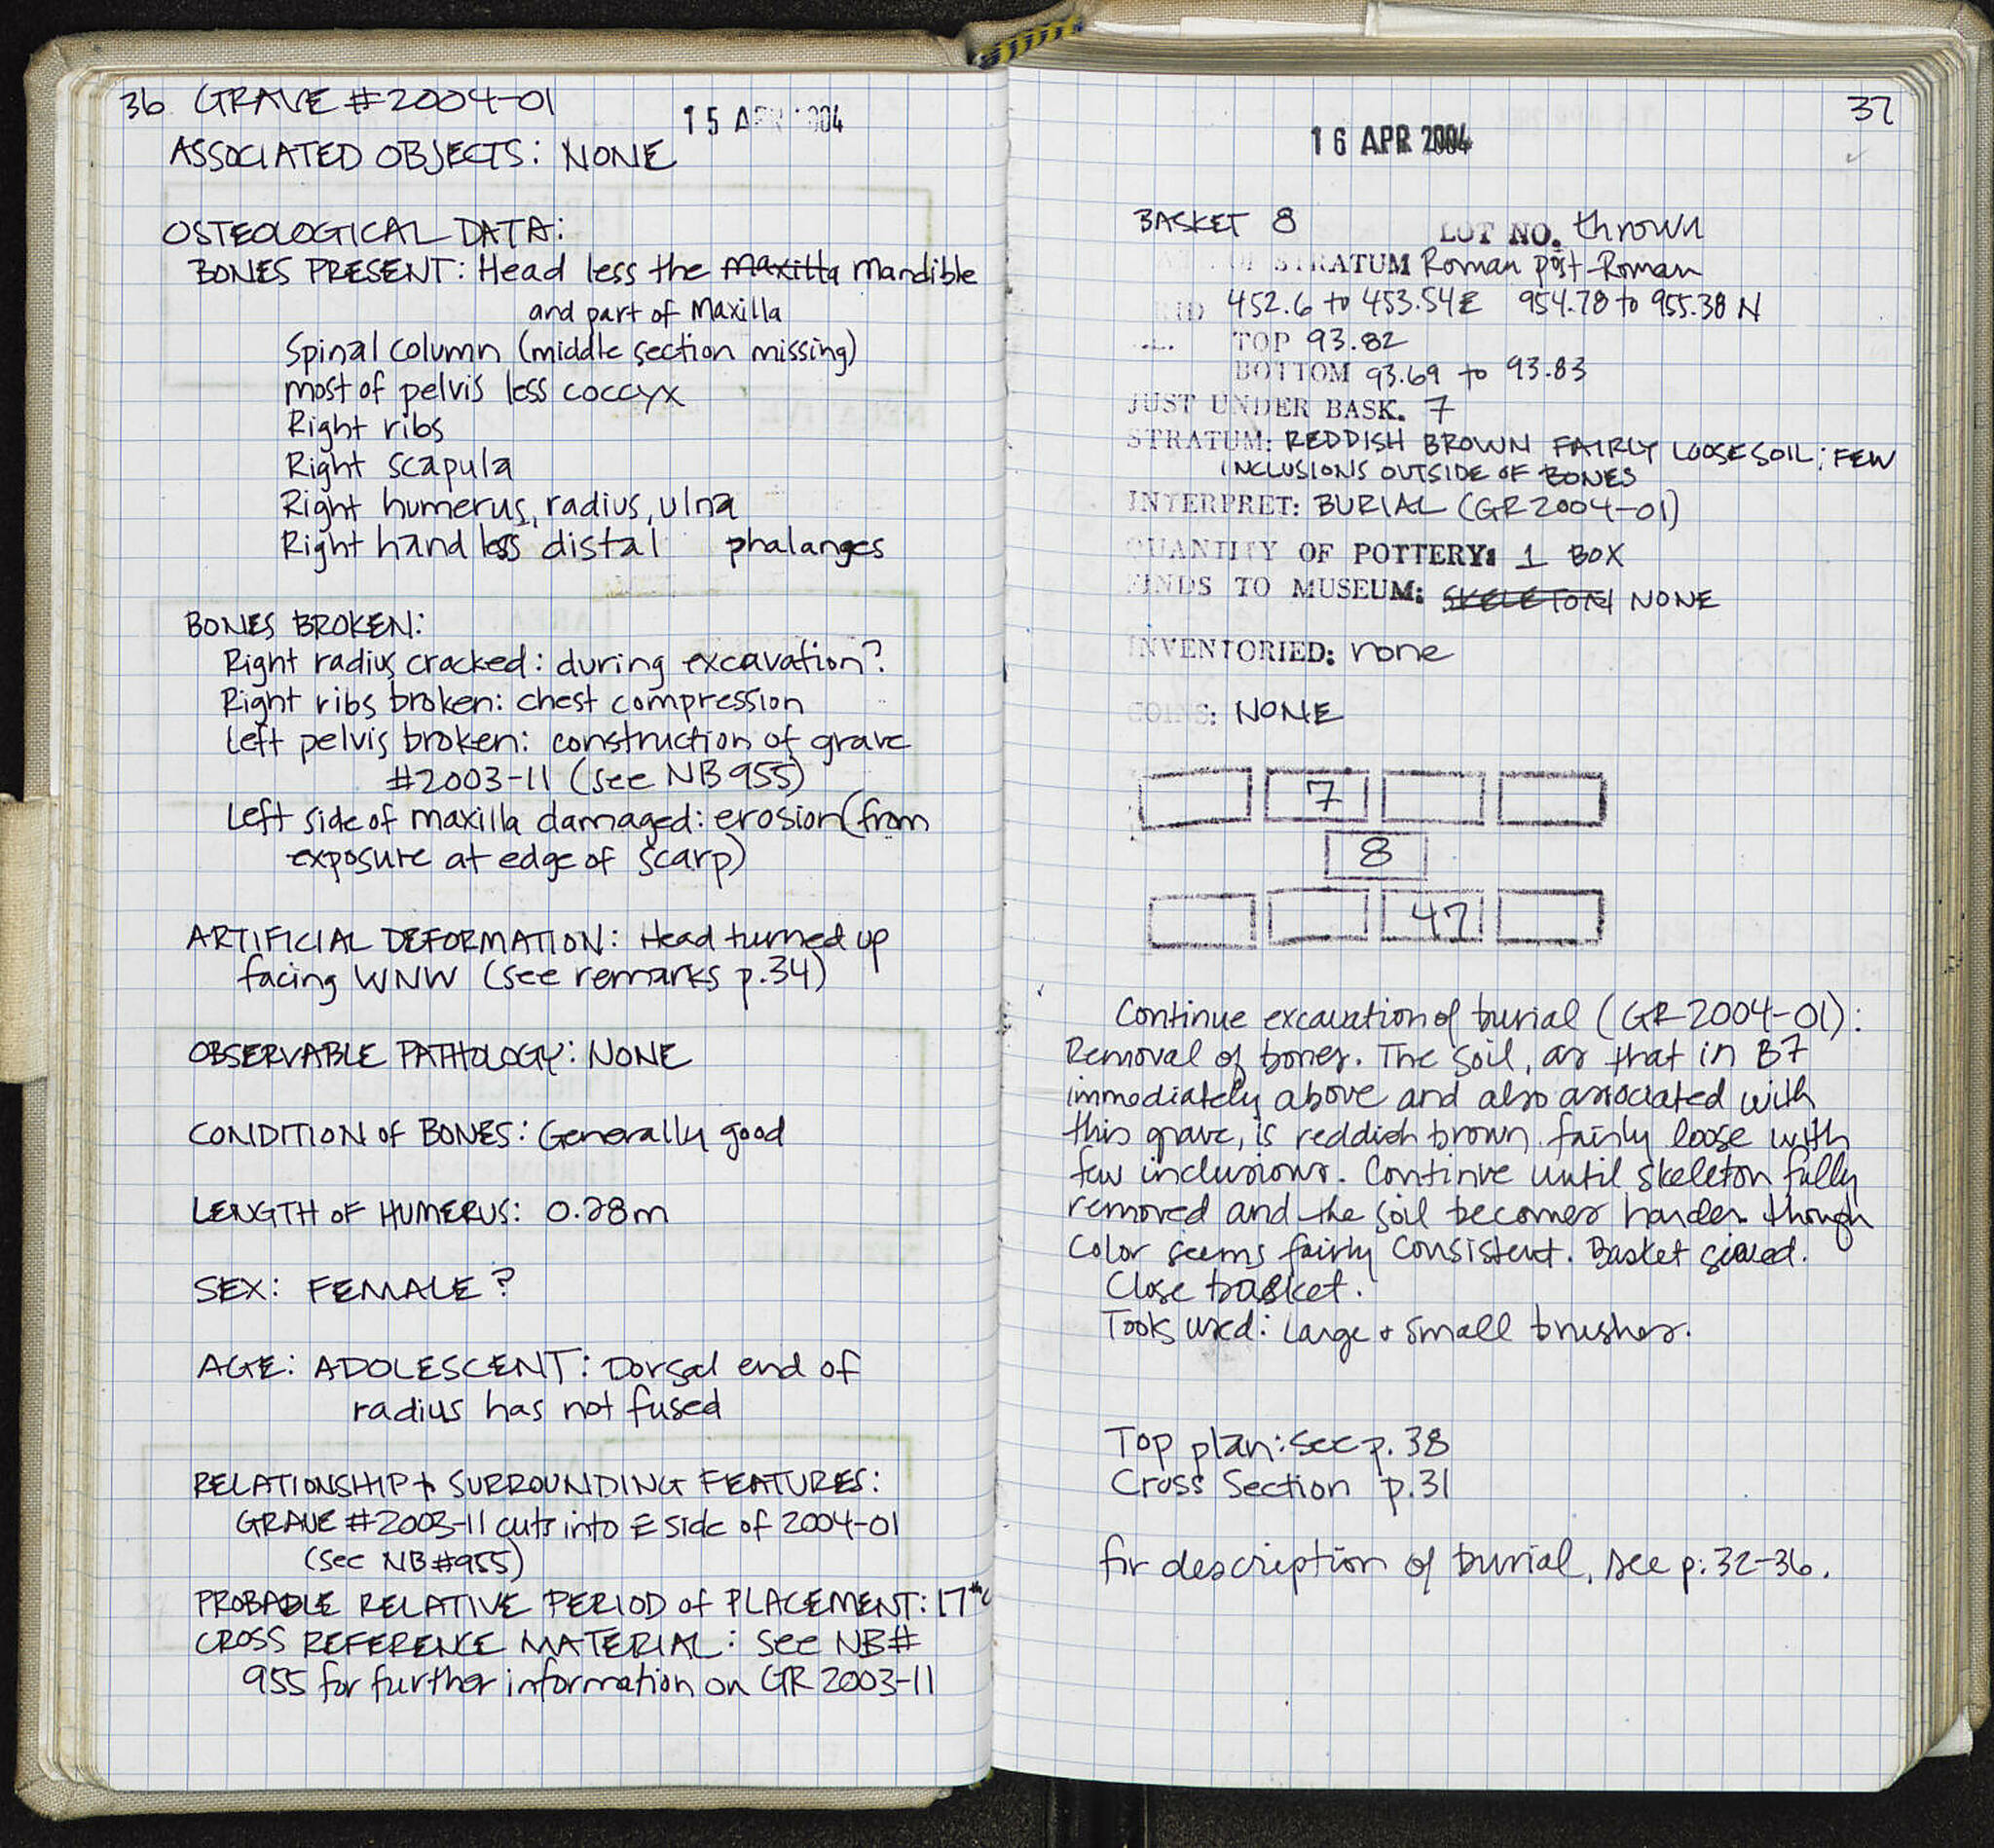 36 GRAVE #2004-01
15 APR 2004
ASSOCIATED OBJECTS: NONE
OSTEOLOGICAL DATA:
BONES PRESENT: Head less the maxilla mandible
and part of maxilla
Spinal column (middle section missing)
most of pelvis less coccyx
Right ribs
Right scapula
Right humerus, radius, ulna
Right hand less distal phalanges
BONES BROKEN:
Right radius cracked: during excavation?
Right ribs broken: chest compression
Left pelvis broken: construction of grave
#2003-11 (see NB 955)
Left side of maxilla damaged: erosion (from
exposure at edge of scarp)
ARTIFICIAL DEFORMATION: Head turned up
facing WNW (see remarks p.34)
OBSERVABLE PATHOLOGY: NONE
CONDITION of BONES: Generally good
LENGTH of HUMERUS: 0.28m
SEX: FEMALE?
AGE: ADOLESCENT: Dorsal end of
radius has not fused
RELATIONSHIP to SURROUNDING FEATURES:
GRAVE #2003-11 cuts into E side of 2004-01
(see NB #955)
PROBABLE RELATIVE PERIOD of PLACEMENT: 17th c
CROSS REFERENCE MATERIAL: see NB#
955 for further information on GR 2003-11
37
16 APR 2004
BASKET 8 LOT NO. thrown
OF STRATUM Roman post-Roman
GRID 452.6 to 453.54E 954.78 to 955.38 N
TOP 93.82
BOTTOM 93.69 to 93.83
JUST UNDER BASK. 7
STRATUM: REDDISH BROWN FAIRLY LOOSE SOIL; FEW
INCLUSIONS OUTSIDE OF BONES
INTERPRET: BURIAL (GR 2004-01)
QUANTITY OF POTTERY: 1 BOX
FINDS TO MUSEUM: SKELETON NONE
INVENTORIED: none
COINS: NONE
7
8
47
Continue excavation of burial (GR 2004-01):
Removal of bones. The soil, as that in B7
immediately above and also associated with
this grave, is reddish brown, fairly loose with
few inclusions. Continue until skeleton fully
removed and the soil becomes harder though
color seems fairly consistent. Basket sieved.
Close basket.
Tools used: large + small brushes.
Top plan: see p. 38
Cross Section p.31
for description of burial, see p. 32-36.